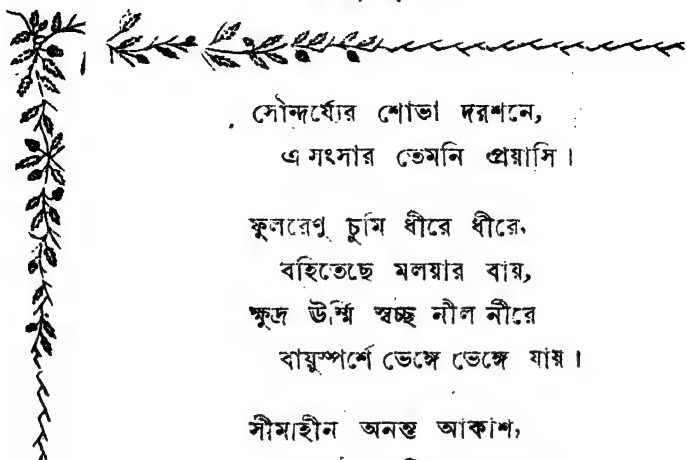 সৌন্দর্য্যের শোভা দরশনে,
এ সংসার তেমনি প্রয়াসি ।
ফুলরেণু চুমি ধীরে ধীরে,
বহিতেছে মলয়ার বায়,
ক্ষুদ্র ঊর্ম্মি স্বচ্ছ নীল নীরে
বায়ুস্পর্শে ভেঙ্গে ভেঙ্গে যায় ।
সীমাহীন অনন্ত আকাশ,